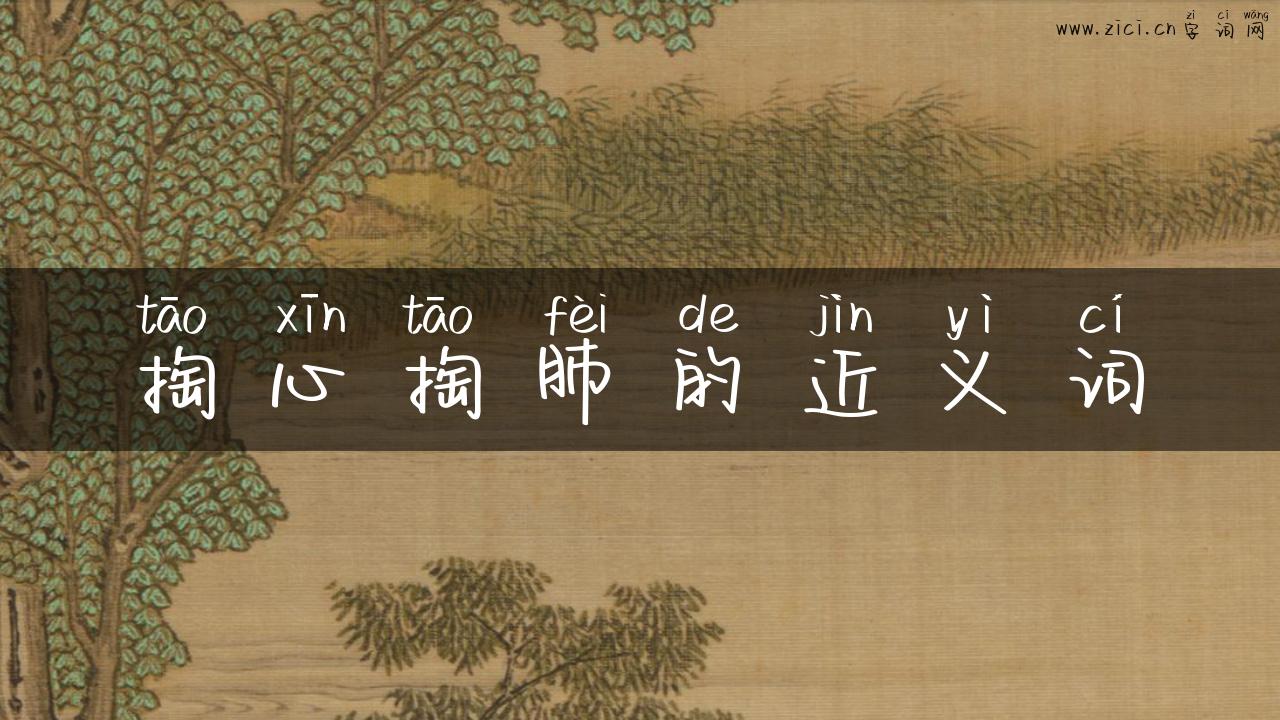 zì cí wǎng
www.zici.cn字词网
tāo xīn tāo fèi de jìn yì cí
掏心掏肺的近义词